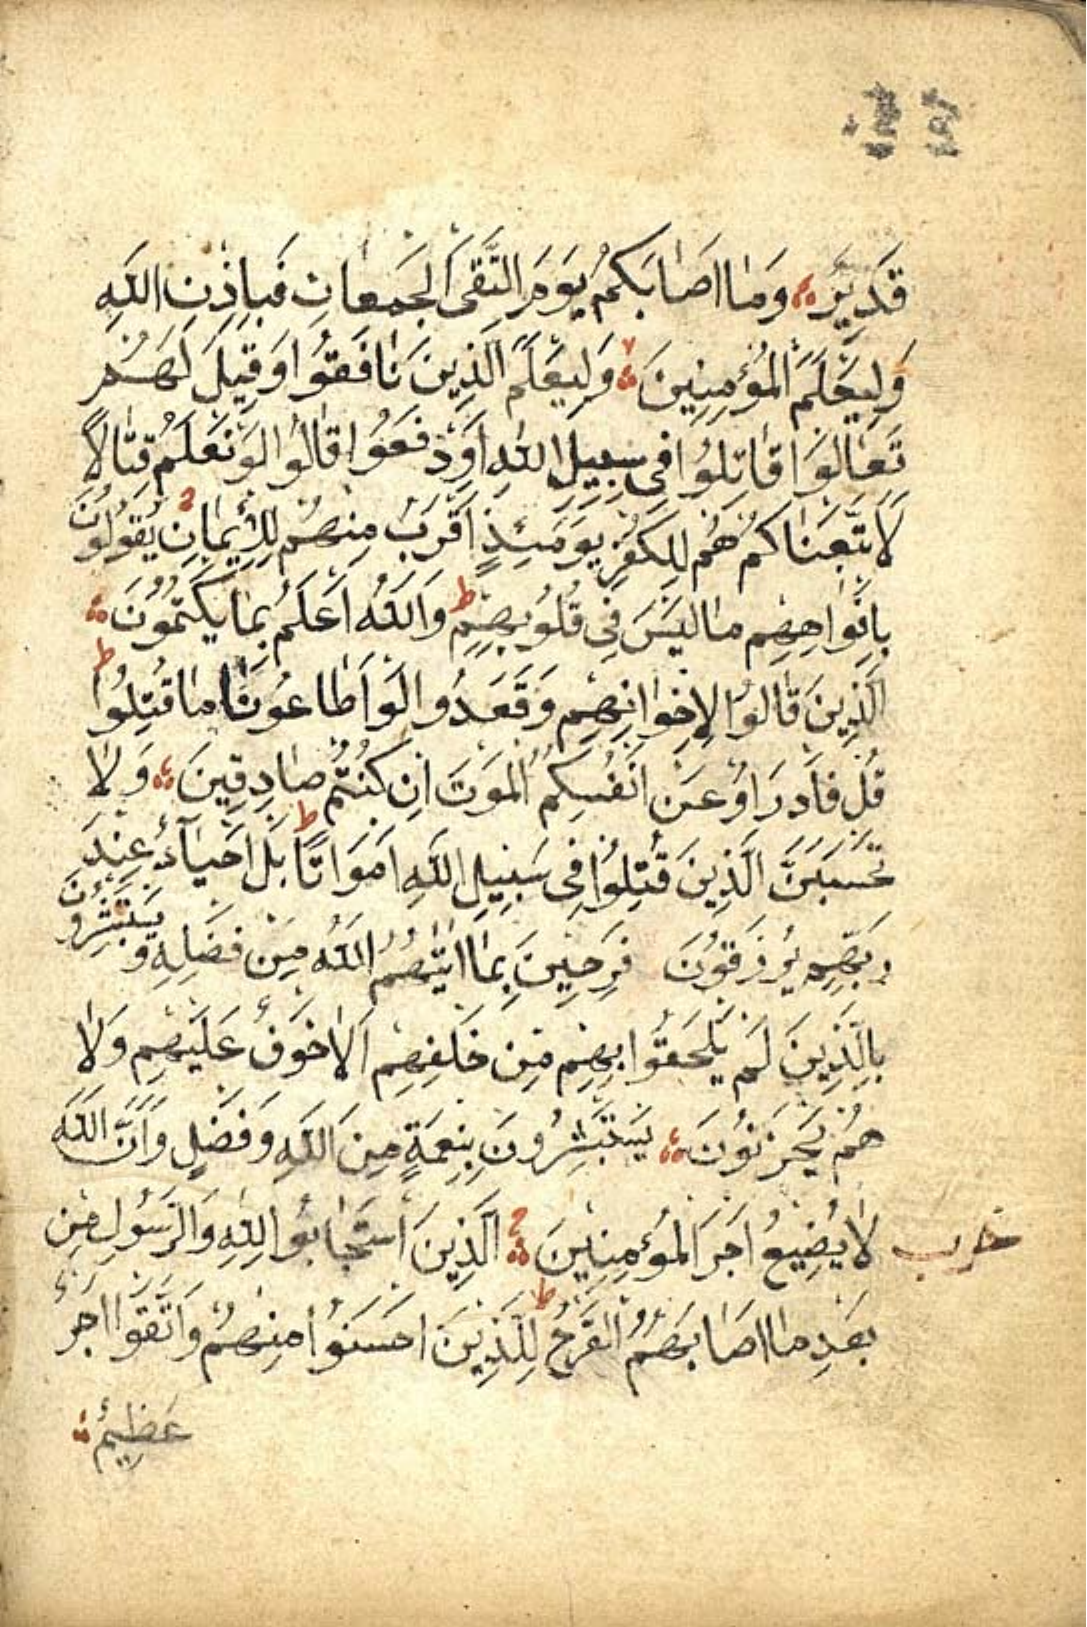 قَدِيرٌ وَمَا اَصَابَكُمْ يَوْمَ الْتَقَى الْجَمْعَانِ فَبِاِذْنِ اللّٰهِ
وَلِيَعْلَمَ الْمُؤْمِنِينَ وَلِيَعْلَمَ الَّذِينَ نَافَقُوا وَقِيلَ لَهُمْ
تَعَالَوْا قَاتِلُوا فِى سَبِيلِ اللّٰهِ اَوِ دْفَعُوا قَالُوا لَوْ نَعْلَمُ قِتَالًا
لَاتَّبَعْنَاكُمْ هُمْ لِلْكُفْرِ يَوْمَئِذٍ اَقْرَبُ مِنْهُمْ لِلْاِيمَانِ يَقُولُونَ
بِاَفْوَاهِهِمْ مَا لَيْسَ فِى قُلُوبِهِمْ ط وَاللّٰهُ اَعْلَمُ بِمَا يَكْتُمُونَ
اَلَّذِينَ قَالُوا لِاِخْوَانِهِمْ وَقَعَدُوا لَوْ اَطَاعُونَا مَا قُتِلُوا ط
قُلْ فَادْرَاؤُ عَنْ اَنْفُسِكُمُ الْمَوْتَ اِنْ كُنْتُمْ صَادِقِينَ وَلَا
تَحْسَبَنَّ الَّذِينَ قُتِلُوا فِى سَبِيلِ اللّٰهِ اَمْوَاتًا ط بَلْ اَحْيَاءٌ عِنْدَ
رَبِّهِمْ يُرْزَقُونَ فَرِحِينَ بِمَا اٰتٰيهُمُ اللّٰهُ مِنْ فَضْلِهِ وَيَسْتَبْشِرُونَ
بِالَّذِينَ لَمْ يَلْحَقُوا بِهِمْ مِنْ خَلْفِهِمْ اَلَّا خَوْفٌ عَلَيْهِمْ وَلَا
هُمْ يَحْزَنُونَ يَسْتَبْشِرُونَ بِنِعْمَةٍ مِنَ اللّٰهِ وَفَضْلٍ وَاَنَّ اللّٰهَ
لَا يُضِيعُ اَجْرَ الْمُؤْمِنِينَ اَلَّذِينَ اسْتَجَابُوا لِلّٰهِ وَالرَّسُولِ مِنْ
حزب
بَعْدِ مَا اَصَابَهُمُ الْقَرْحُ ط لِلَّذِينَ اَحْسَنُوا مِنْهُمْ وَاتَّقَوْا اَجْرٌ
عَظِيمٌ